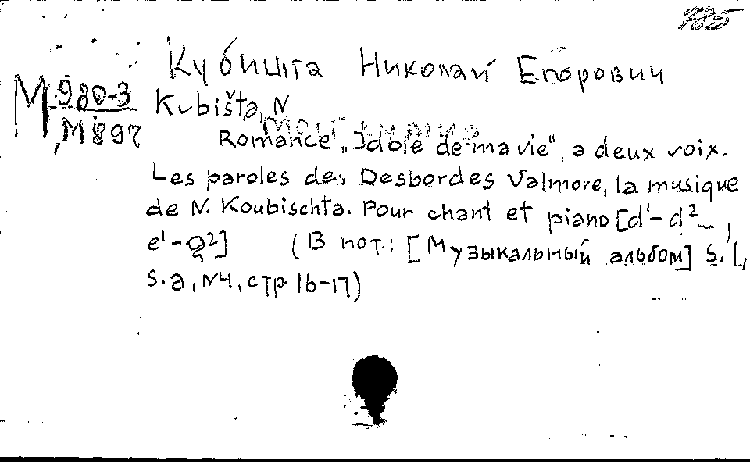 785
Кубишта Николай Егорович
М 980-3
М 897
Kubišta, N
Romance „Idole de ma vie", a deux voix.
Les paroles de Desbordes Valmore, la musique
de N. Koubischta. Pour chant et piano [d¹-d²,
e¹-g²] (В нот.: [Музыкальный альбом] S. l,
s.a, N4, стр 16-17)